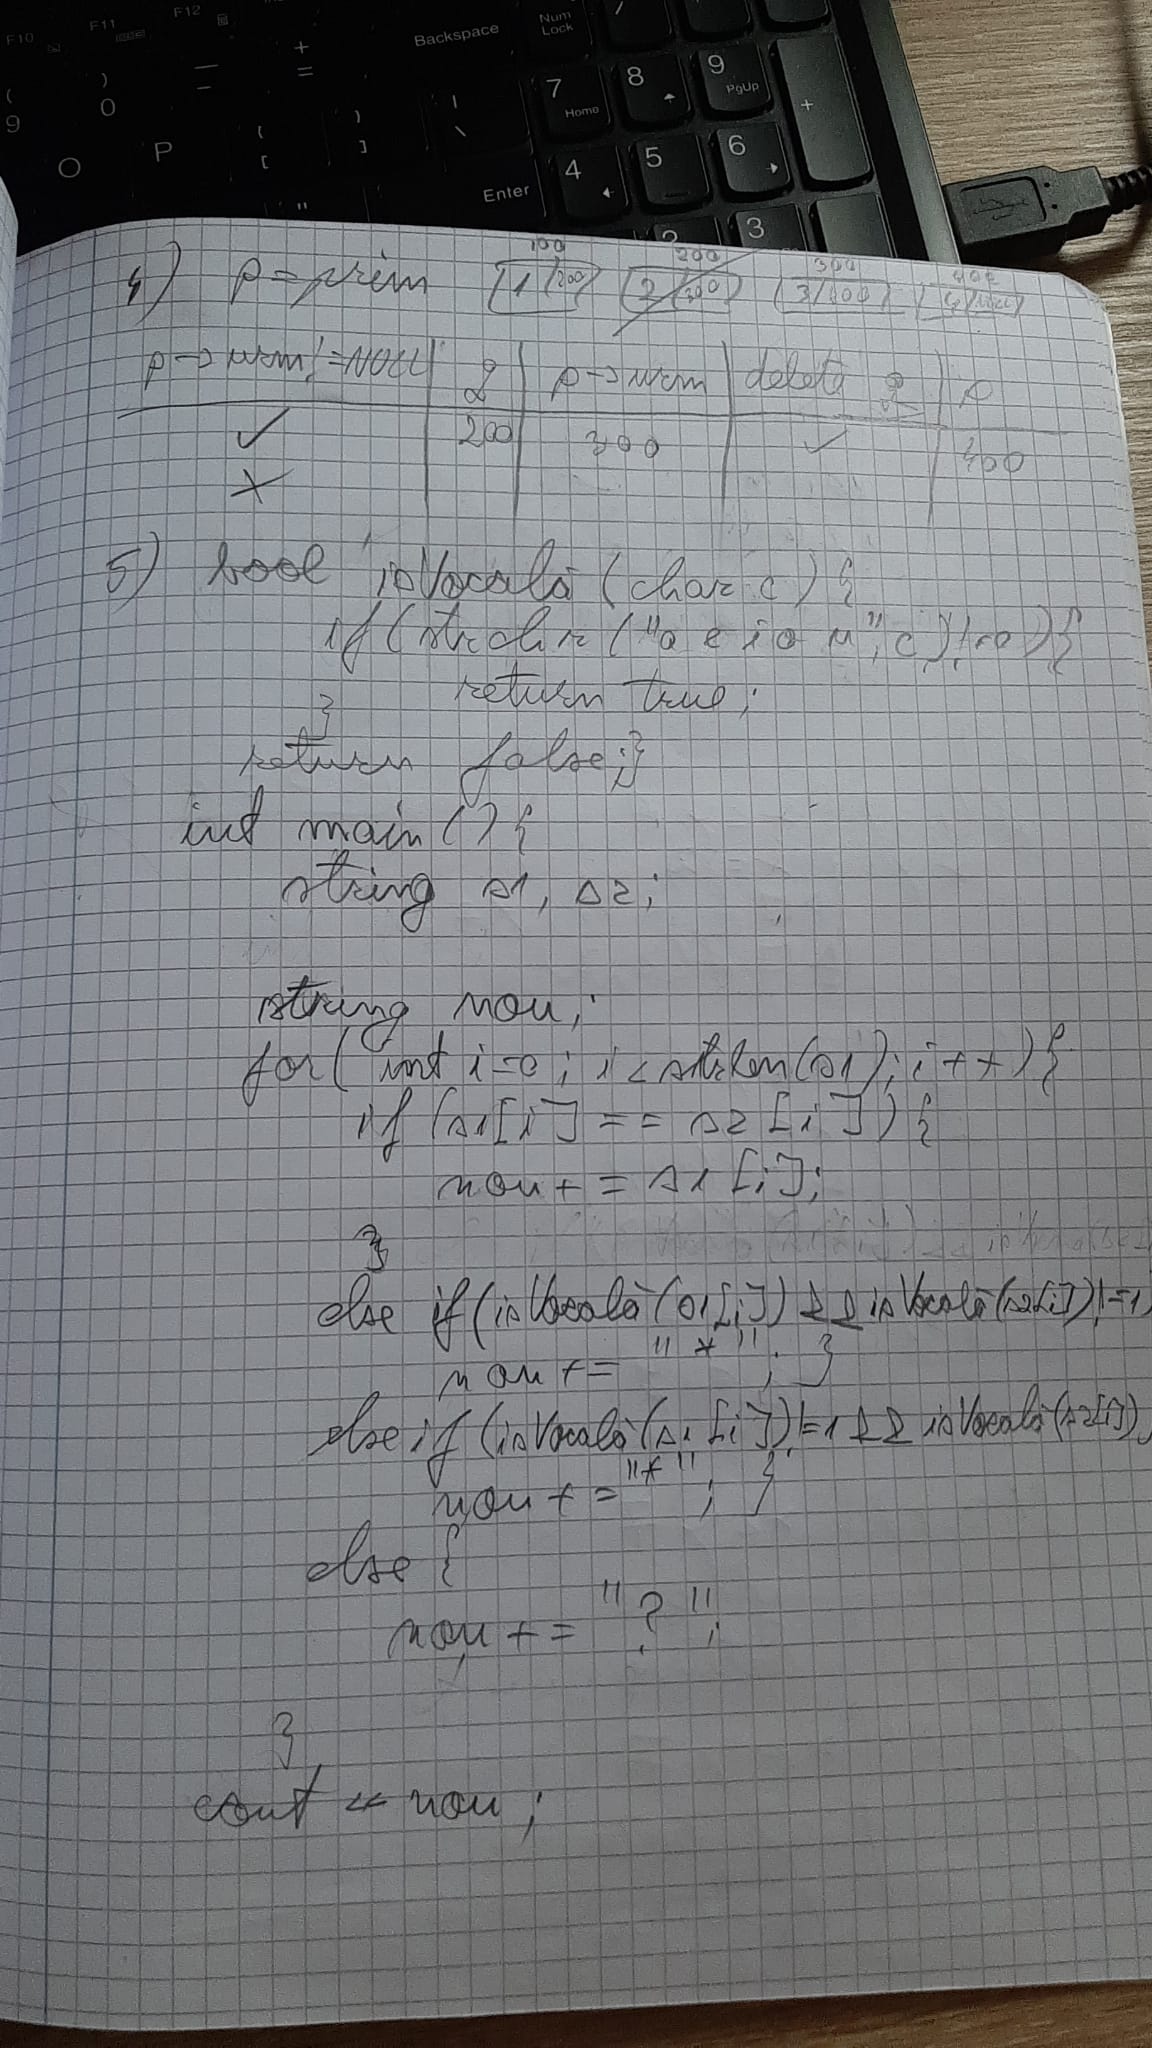 F10 F11 F12
Backspace Num Lock
( 9 ) 0 _ - + =
7 Home 8 9 PgUp +
O P { [ } ] | \
Enter 4 5 6
" 2 3
100 200 300 400
4) p = prim 1/200 2/300 3/400
p->urm != NULL | q | p->urm | delete q | p
✓ 200 300 ✓ 400
X
5) bool isVocală (char c) {
if (strchr ("a e i o u", c) != 0) {
return true;
}
return false;}
int main () {
string s1, s2;
string nou;
for( int i=0; i < strlen(s1); i++) {
if (s1[i] == s2[i]) {
nou += s1[i];
}
else if (isVocală(s1[i]) && isVocală(s2[i]) != 1)
nou += "*"; }
else if (isVocală(s1[i]) != 1 && isVocală(s2[i])
nou += "*"; }
else {
nou += "?";
}
cout << nou;